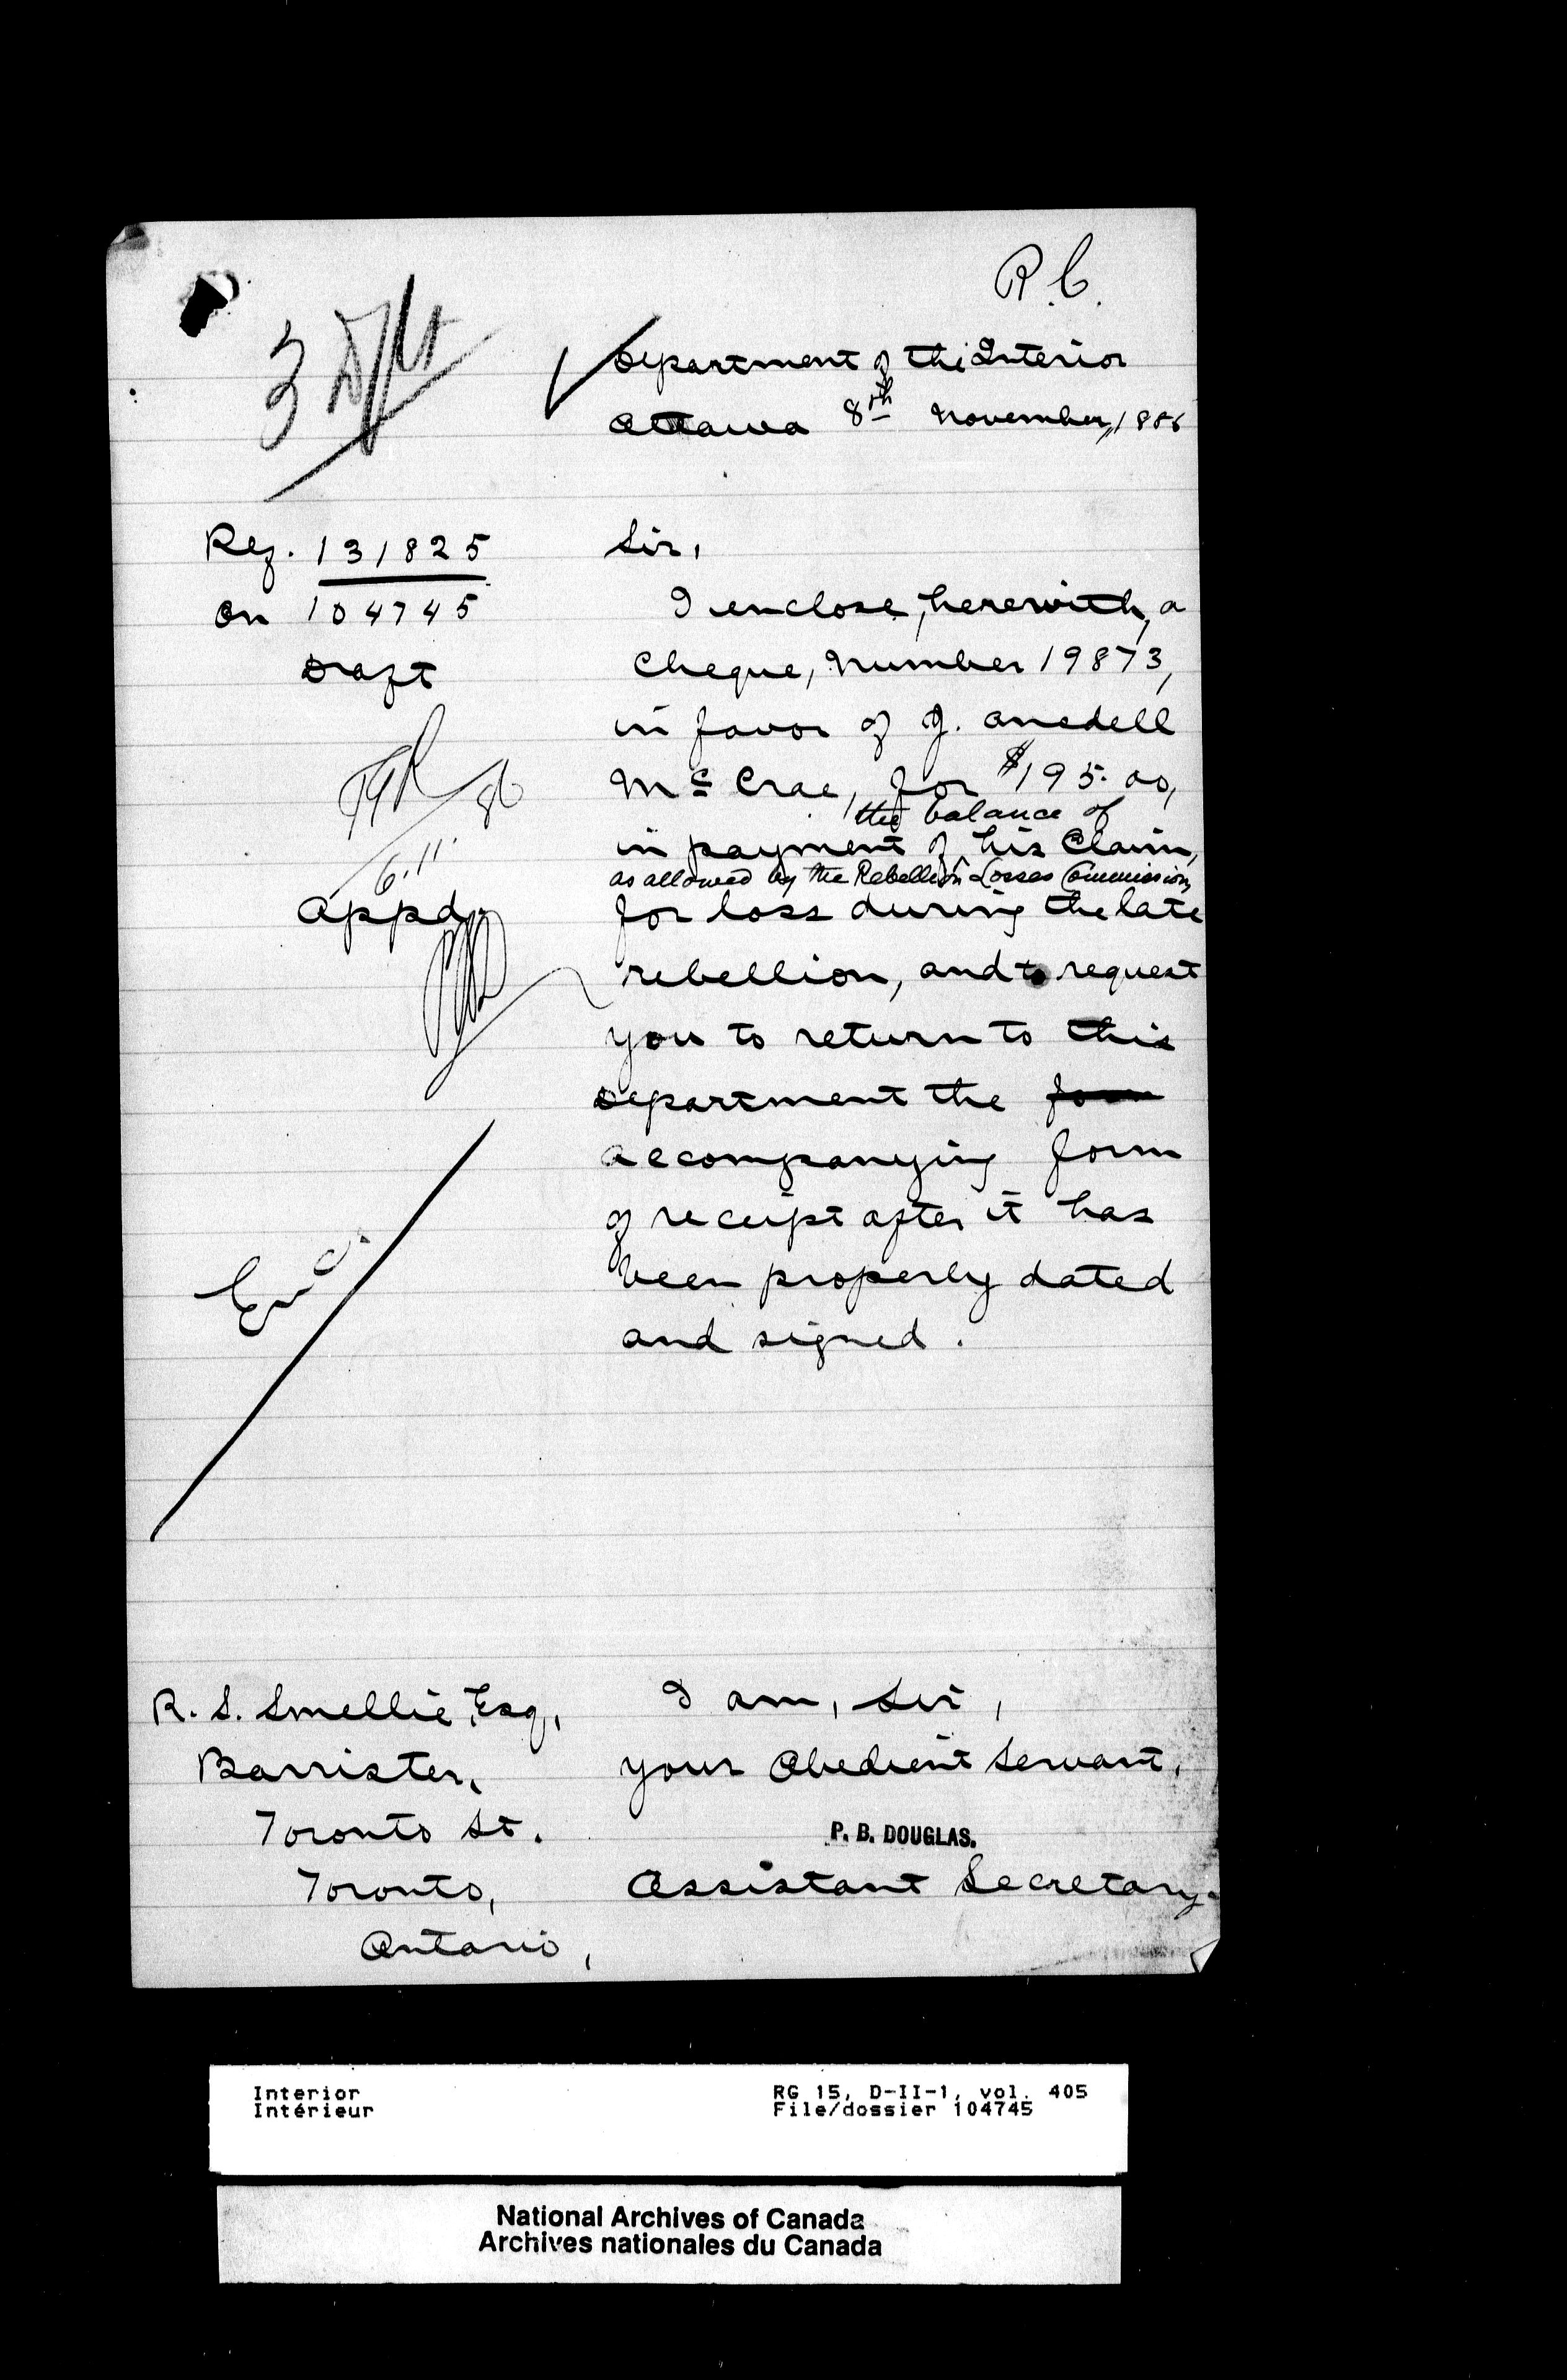 R.C.
Department of the Interior
Ottawa 8th November, 1886
Ref. 131825
on 104745
Draft
6.11. 86
Appd.
Enc.
Sir,
I enclose, herewith, a
Cheque, Number 19873,
in favor of J. Ansdell
McCrae, for $195.00,
the balance of
in payment of his Claim,
as allowed by the Rebellion Losses Commission,
for loss during the late
rebellion, and to request
you to return to this
Department the form
accompanying form
of receipt after it has
been properly dated
and signed.
I am, Sir,
your Obedient Servant,
P. B. DOUGLAS.
Assistant Secretary.
R. S. Smellie, Esq,
Barrister,
Toronto St.
Toronto,
Ontario,
Interior
Intérieur
RG 15, D-II-1, vol. 405
File/dossier 104745
National Archives of Canada
Archives nationales du Canada